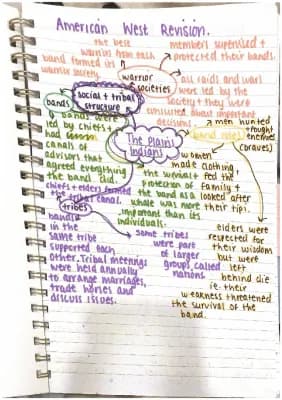 American West Revision.
the best
warriors from each
band formed its
warrior society.
members supervised +
protected their bands.
warrior
societies
all raids and wars
were led by the
society + they were
consulted about important
decisions.
social + tribal
structure
bands
bands were
led by chiefs +
had
canals of
advisors that
agreed everything
the band did.
chiefs + elders formed
the tribal canal.
The Plains
Indians
band roles
men hunted
+ fought
enemies
(braves)
women
made clothing,
fed the
family +
looked after
their tipi.
the survival +
protection of
the band as a
whole was more
important than its
individuals.
elders were
respected for
their wisdom
but were
left
behind die
ie. their
weakness threatened
the survival of the
band.
tribes
bands
in the
same tribe
supported each
other. Tribal meetings
were held annually
to arrange marriages,
trade horses and
discuss issues.
some tribes
were part
of larger
groups called
nations